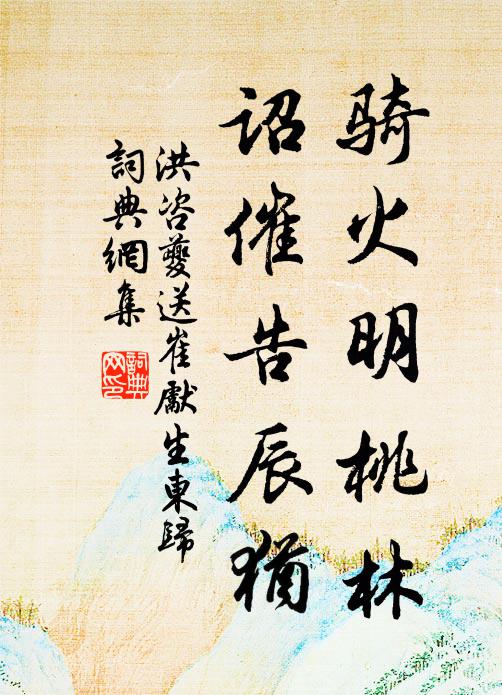 骑火明桃林
诏催告辰犹
洪咨夔送崔獻生東歸
詞典網集
詞典
网印